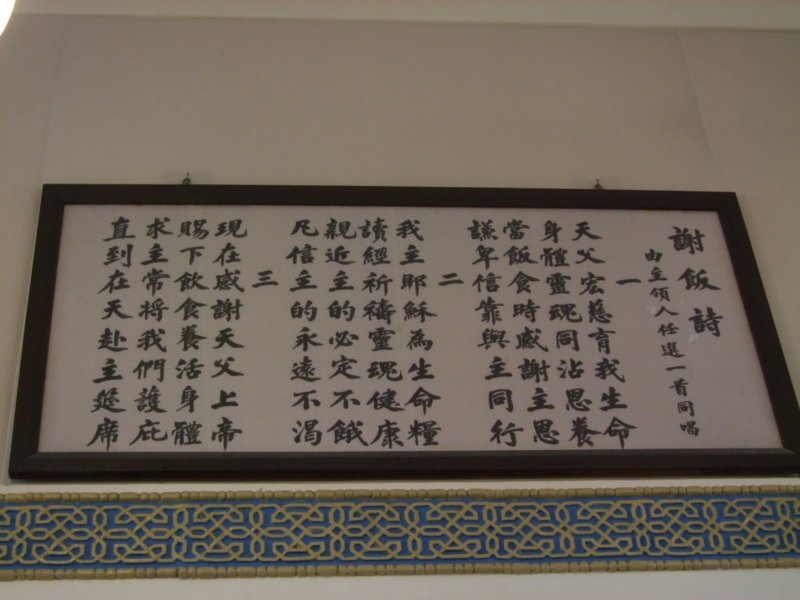 謝飯詩
由主領人任選一首同唱
一
天父宏慈育我生命
身體靈魂同沾恩養
當飯食時感謝主恩
謙卑信靠與主同行
二
我主耶穌為生命糧
讀經祈禱靈魂健康
親近主的必定不餓
凡信主的永遠不渴
三
現在感謝天父上帝
賜下飲食養活身體
求主常將我們護庇
直到在天赴主筵席